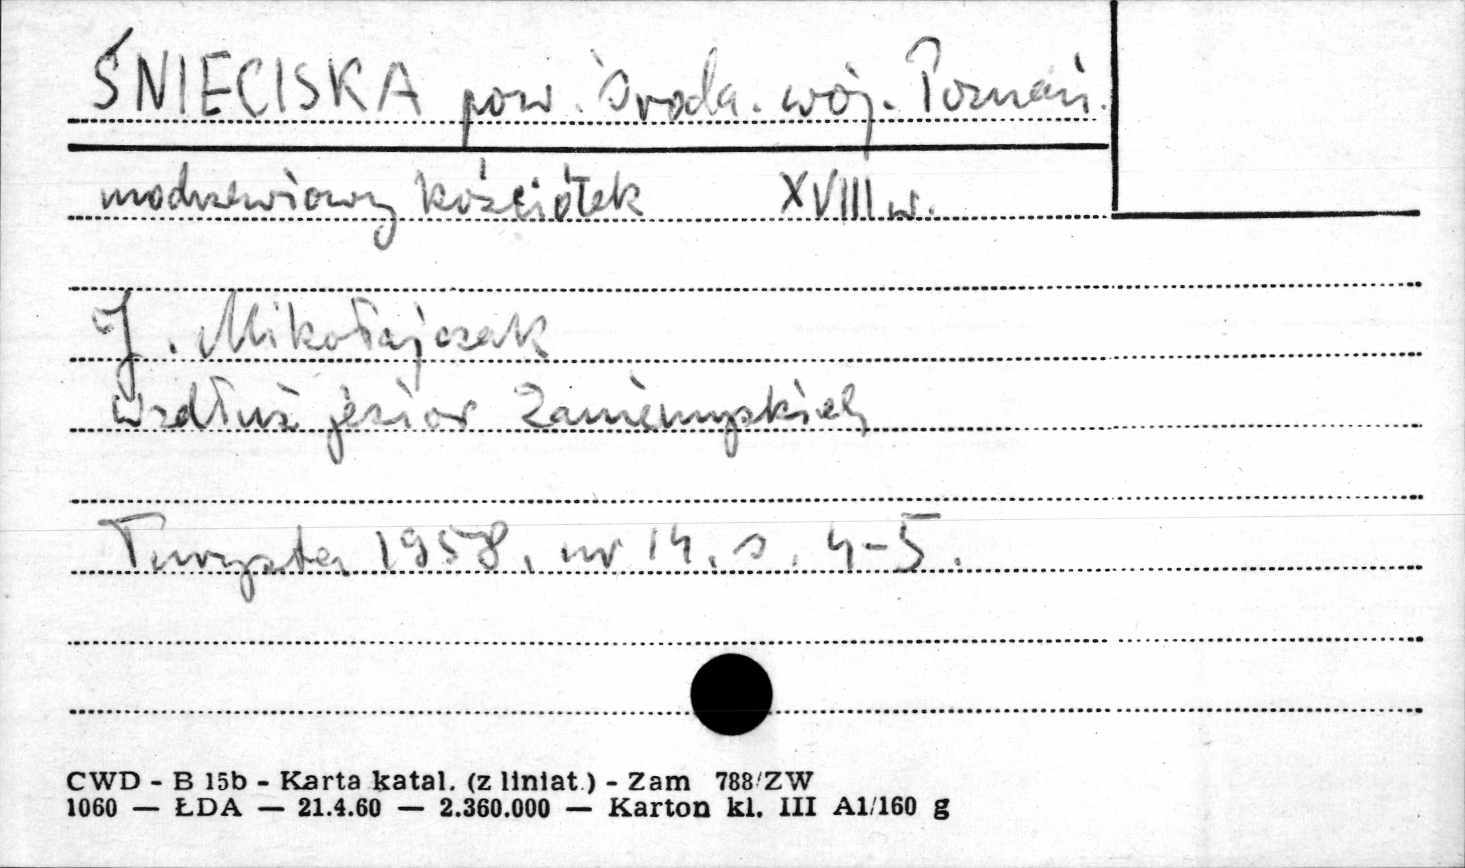 ŚNIECISKA pow. Środa. woj. Poznań.
modrzewiowy kościółek XVIII w.
J. Mikołajczak
Wzdłuż jezior Zaniemyskich
Turysta 1958, nr 14, s. 4-5.
CWD - B 15b - Karta katal. (z liniat.) - Zam 788/ZW
1060 — ŁDA — 21.4.60 — 2.360.000 — Karton kl. III A1/160 g